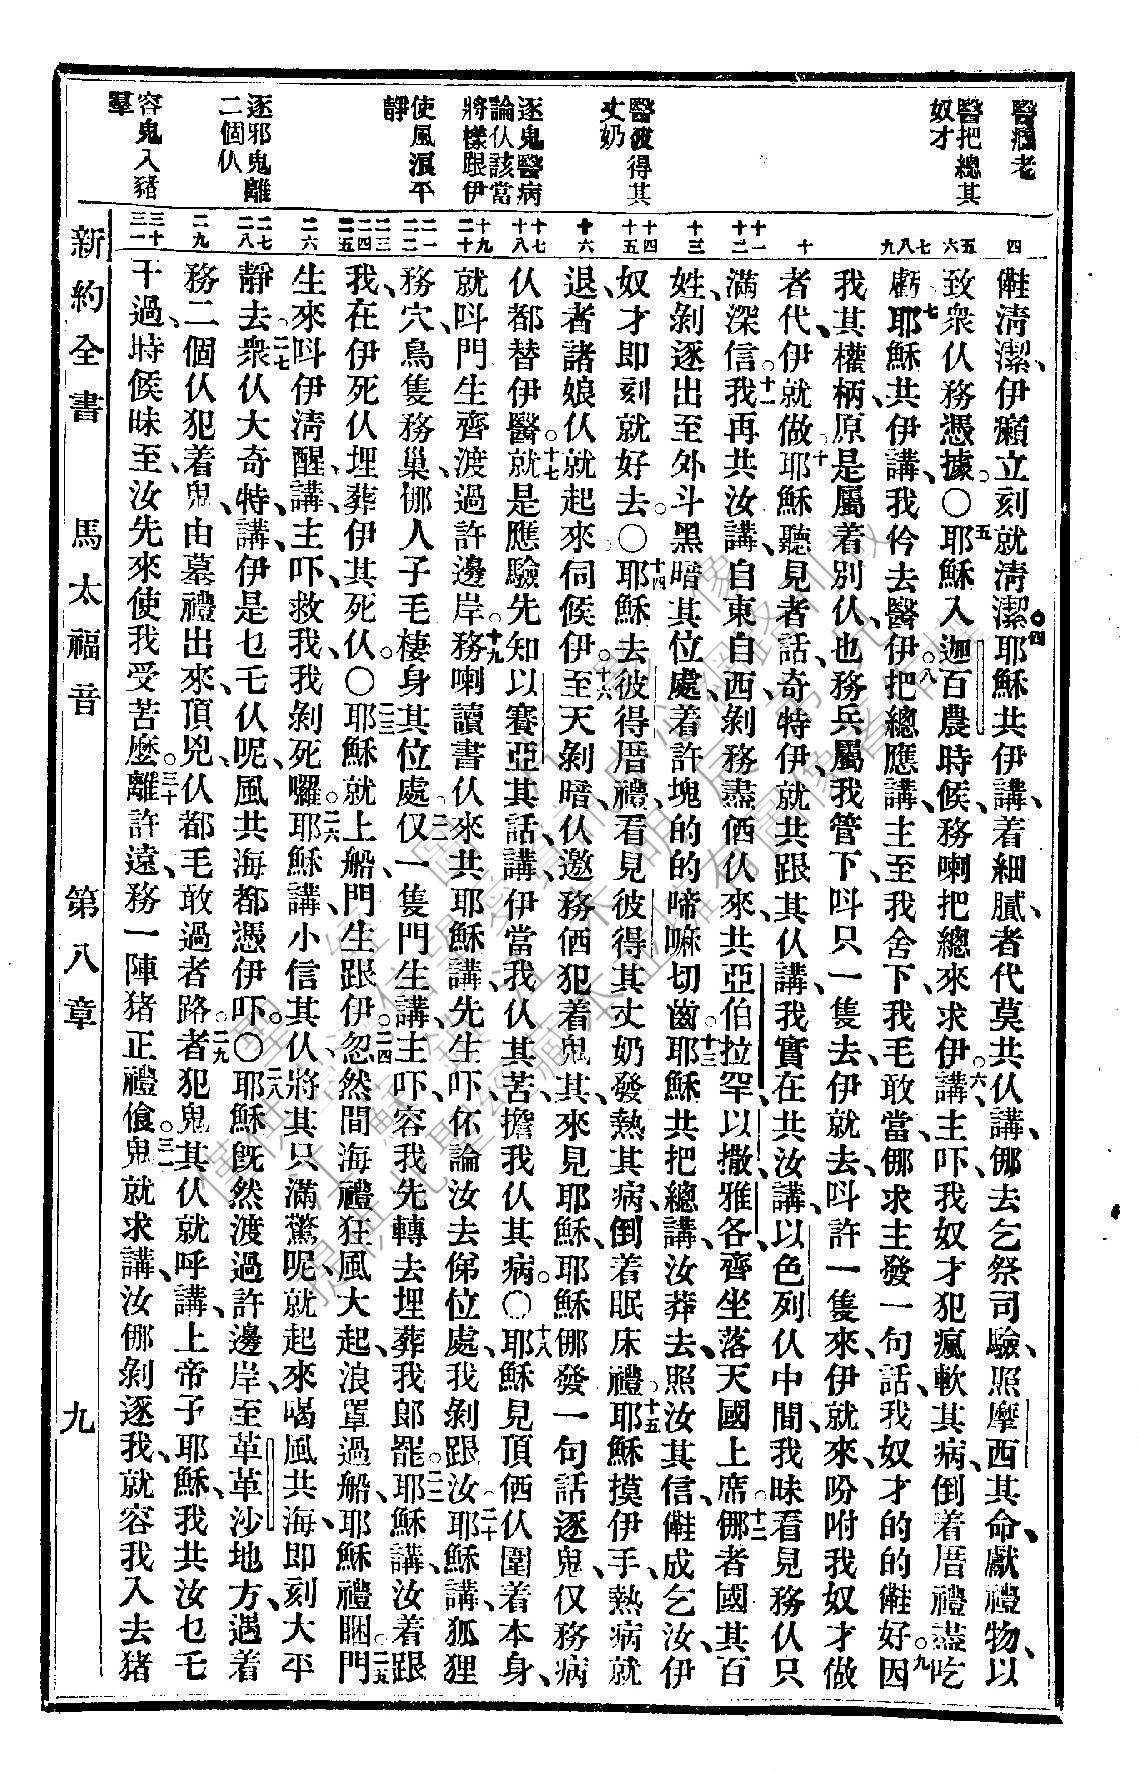 醫癩老
醫把總其
奴才
醫彼得其
丈奶
逐鬼醫病
論仈該當
將樣跟伊
使風浪平
靜
逐邪鬼離
二個仈
容鬼入豬
羣
四
五
六
七
八
九
十
十一
十二
十三
十四
十五
十六
十七
十八
十九
二十
二一
二二
二三
二四
二五
二六
二七
二八
二九
三十
三一
㑚清潔、伊癩立刻就清潔。四耶穌共伊講、着細膩、者代莫共仈講、㑚去乞祭司驗、照摩西其命、獻禮物、以
致衆仈務憑據。〇五耶穌入迦百農時候、務喇把總來求伊。六講、主吓、我奴才犯瘋軟其病、倒着厝禮、盡吃
虧。七耶穌共伊講、我伶去醫伊。八把總應講、主至我舍下、我毛敢當、㑚求主發一句話、我奴才的的㑚好。九因
我其權柄、原是屬着別仈、也務兵屬我管下、呌只一隻去、伊就去、呌許一隻來、伊就來、吩咐我奴才做
者代、伊就做。十耶穌聽見者話、奇特、伊就共跟其仈講、我實在共汝講、以色列仈中間、我昧看見務仈只
滿深信。十一我再共汝講、自東自西、剝務盡㑚仈來、共亞伯拉罕、以撒、雅各、齊坐落天國上席。十二㑚者國其百
姓、剝逐出至外斗黑暗其位處、着許塊的的啼嘛切齒。十三耶穌共把總講、汝莽去、照汝其信、㑚成乞汝、伊
奴才卽刻就好去。〇十四耶穌去彼得厝禮、看見彼得其丈奶發熱其病、倒着眠床禮。十五耶穌摸伊手、熱病就
退、者諸娘仈就起來伺候伊。十六至天剝暗、仈邀務㑚犯着鬼其、來見耶穌、耶穌㑚發一句話逐鬼、仅務病
仈都替伊醫。十七就是應驗先知以賽亞其話、講、伊當我仈其苦、擔我仈其病。〇十八耶穌見頂㑚仈圍着本身、
就呌門生齊渡過許邊岸。十九務喇讀書仈來共耶穌講、先生吓、伓論汝去俤位處、我剝跟汝。二十耶穌講、狐狸
務穴、鳥隻務巢、㑚人子毛棲身其位處。二一仅一隻門生講、主吓、容我先轉去埋葬我郎罷。二二耶穌講、汝着跟
我、在伊死仈埋葬伊其死仈。〇二三耶穌就上船、門生跟伊。二四忽然間海禮狂風大起、浪罩過船、耶穌禮睏。二五門
生來呌伊清醒、講、主吓、救我、我剝死囉。二六耶穌講、小信其仈、將其只滿驚呢、就起來喝風共海、卽刻大平
靜去。二七衆仈大奇特、講、伊是乜乇仈呢、風共海都憑伊吓。〇二八耶穌旣然渡過許邊岸、至革革沙地方、遇着
務二個仈犯着鬼、由墓禮出來、頂兇、仈都毛敢過者路。二九者犯鬼其仈就呼講、上帝子耶穌、我共汝乜乇
干過、時候昧至、汝先來使我受苦麽。三十離許遠、務一陣猪正禮飡。三一鬼就求講、汝㑚剝逐我、就容我入去猪
新約全書　馬太福音　第八章　九